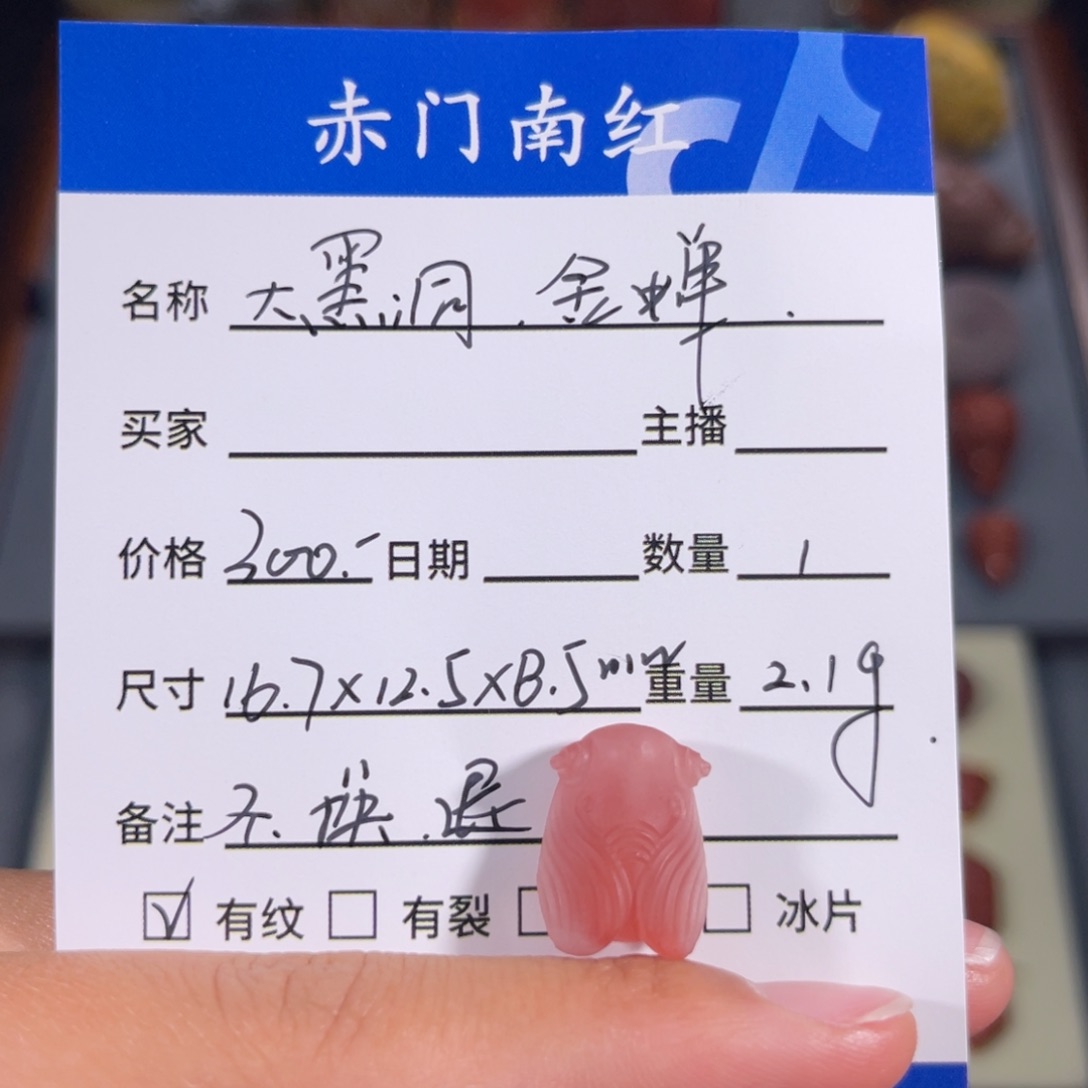 赤门南红
名称 大黑洞.金蝉.
买家 主播
价格 300.- 日期 数量 1
尺寸 16.7×12.5×8.5mm 重量 2.1g
备注 不.换.退
有纹 有裂 冰片